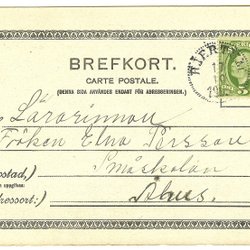 BREFKORT.
CARTE POSTALE.
(DENNA SIDA ANVÄNDES ENDAST FÖR ADRESSERINGEN.)
HJERT
Lärarinnan
Fröken Elna Persson
Småskolan
Åhus.
ostad,)
en uppgifves:
dressort:)
5